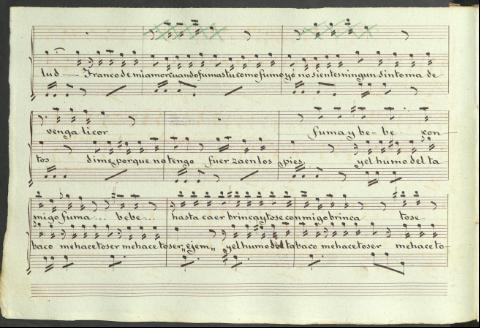 lud — Franco de mi amor cuando fumas tu como fumo yo no sientes ningun sintoma de
venga licor fuma y be - be con
tos dime porque no tengo fuerza en los pies y el humo del ta
migo fuma... bebe... hasta caer brinca y tose conmigo brinca tose
baco me hace toser me hace toser, ejem, y el humo del tabaco me hace toser me hace to